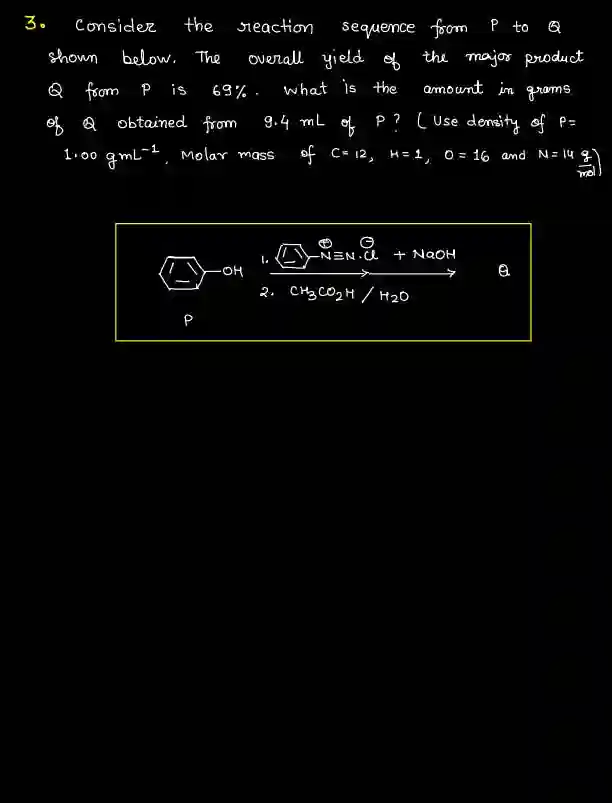 3. Consider the reaction sequence from P to Q
shown below. The overall yield of the major product
Q from P is 69%. what is the amount in grams
of Q obtained from 9.4 mL of P? (Use density of P=
1.00 gmL⁻¹, Molar mass of C=12, H=1, O=16 and N=14 g/mol)
1. N≡N.Cl + NaOH
⊕ ⊖
OH
Q
2. CH3CO2H / H2O
P